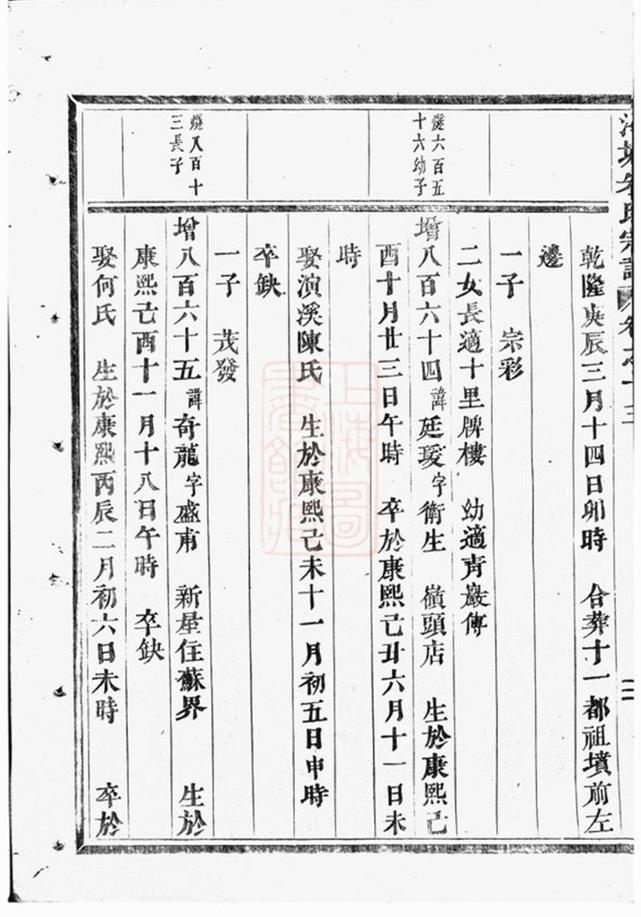 朱氏宗譜 卷之十三
乾隆庚辰三月十四日卯時 合葬十一都祖墳前左
邊
一子 宗彩
二女長適十里牌樓 幼適青巖傅
燧六百五
十六幼子
增八百六十四諱廷璦字衛生 嶺頭店 生於康熙己
酉十月廿三日午時 卒於康熙己丑六月十一日未
時
娶演溪陳氏 生於康熙己未十一月初五日申時
卒缺
一子 茂發
燧八百十
三長子
增八百六十五諱奇龍字盛甫 新屋住蘇界 生於
康熙己酉十一月十八日午時 卒缺
娶何氏 生於康熙丙辰二月初六日未時 卒於
上海圖書館藏